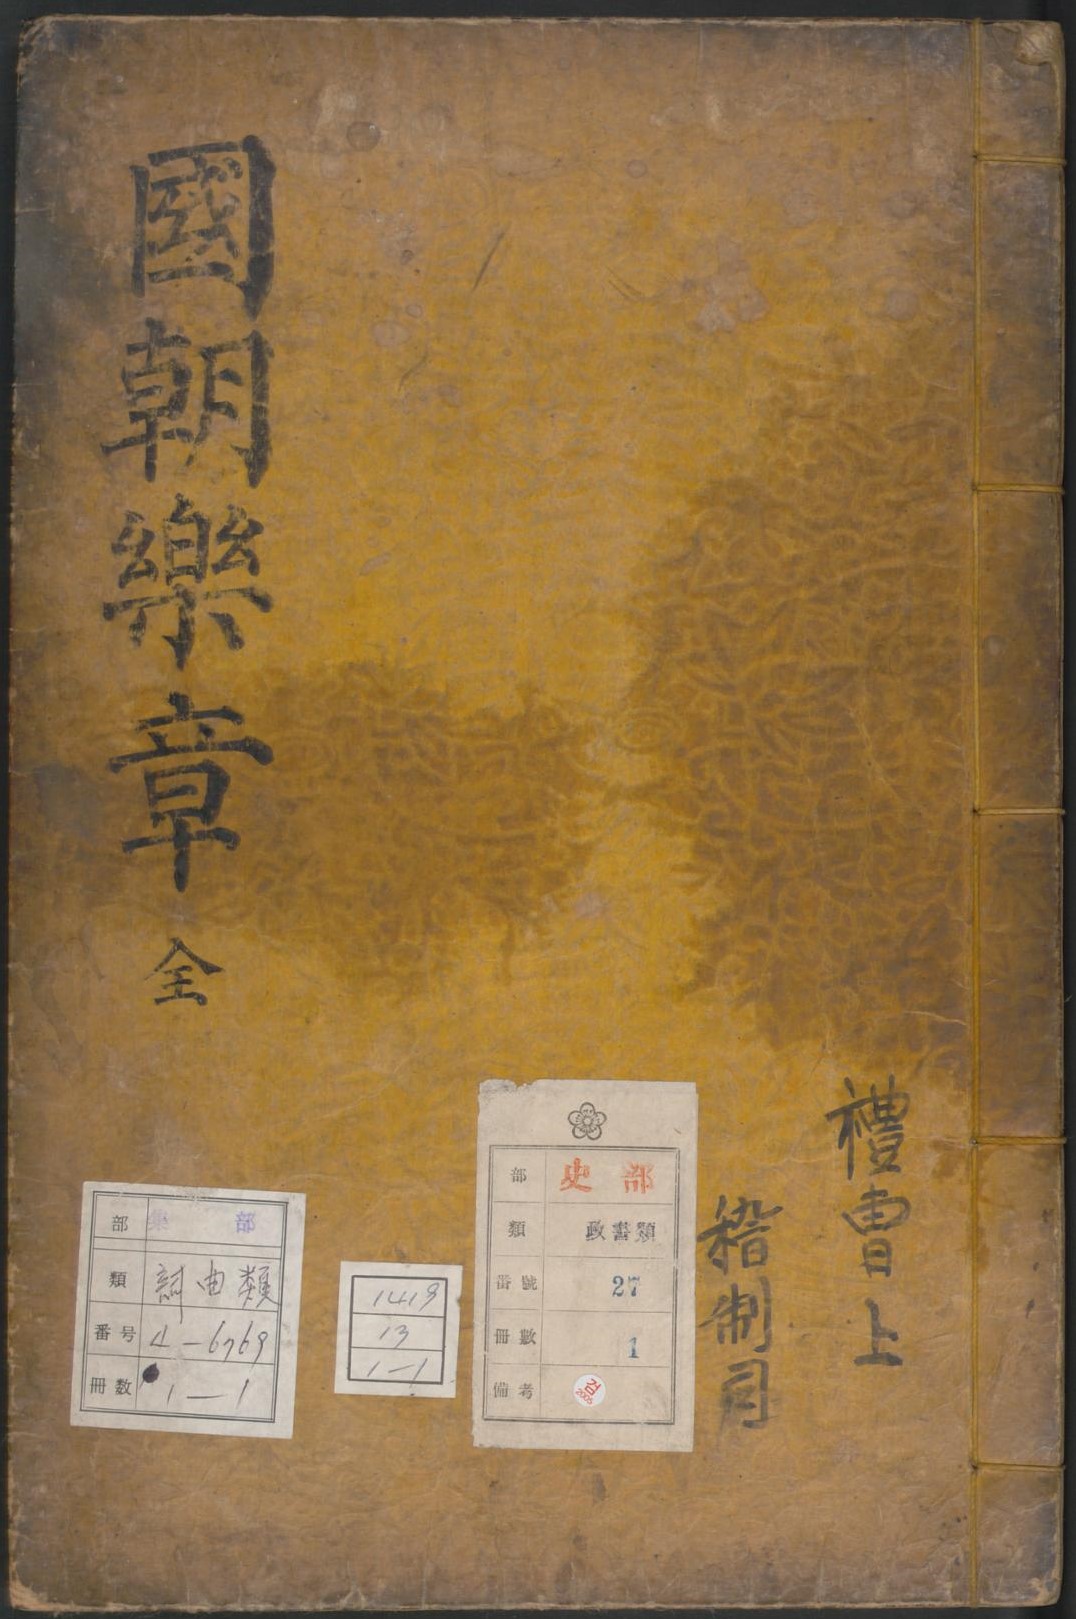 國朝樂章 全
禮曹上
稽制司
部 史部
類 政書類
番號 27
冊數 1
備考 검 2005
1419
13
1-1
部 集部
類 詞曲類
番号 4-6769
冊数 1-1